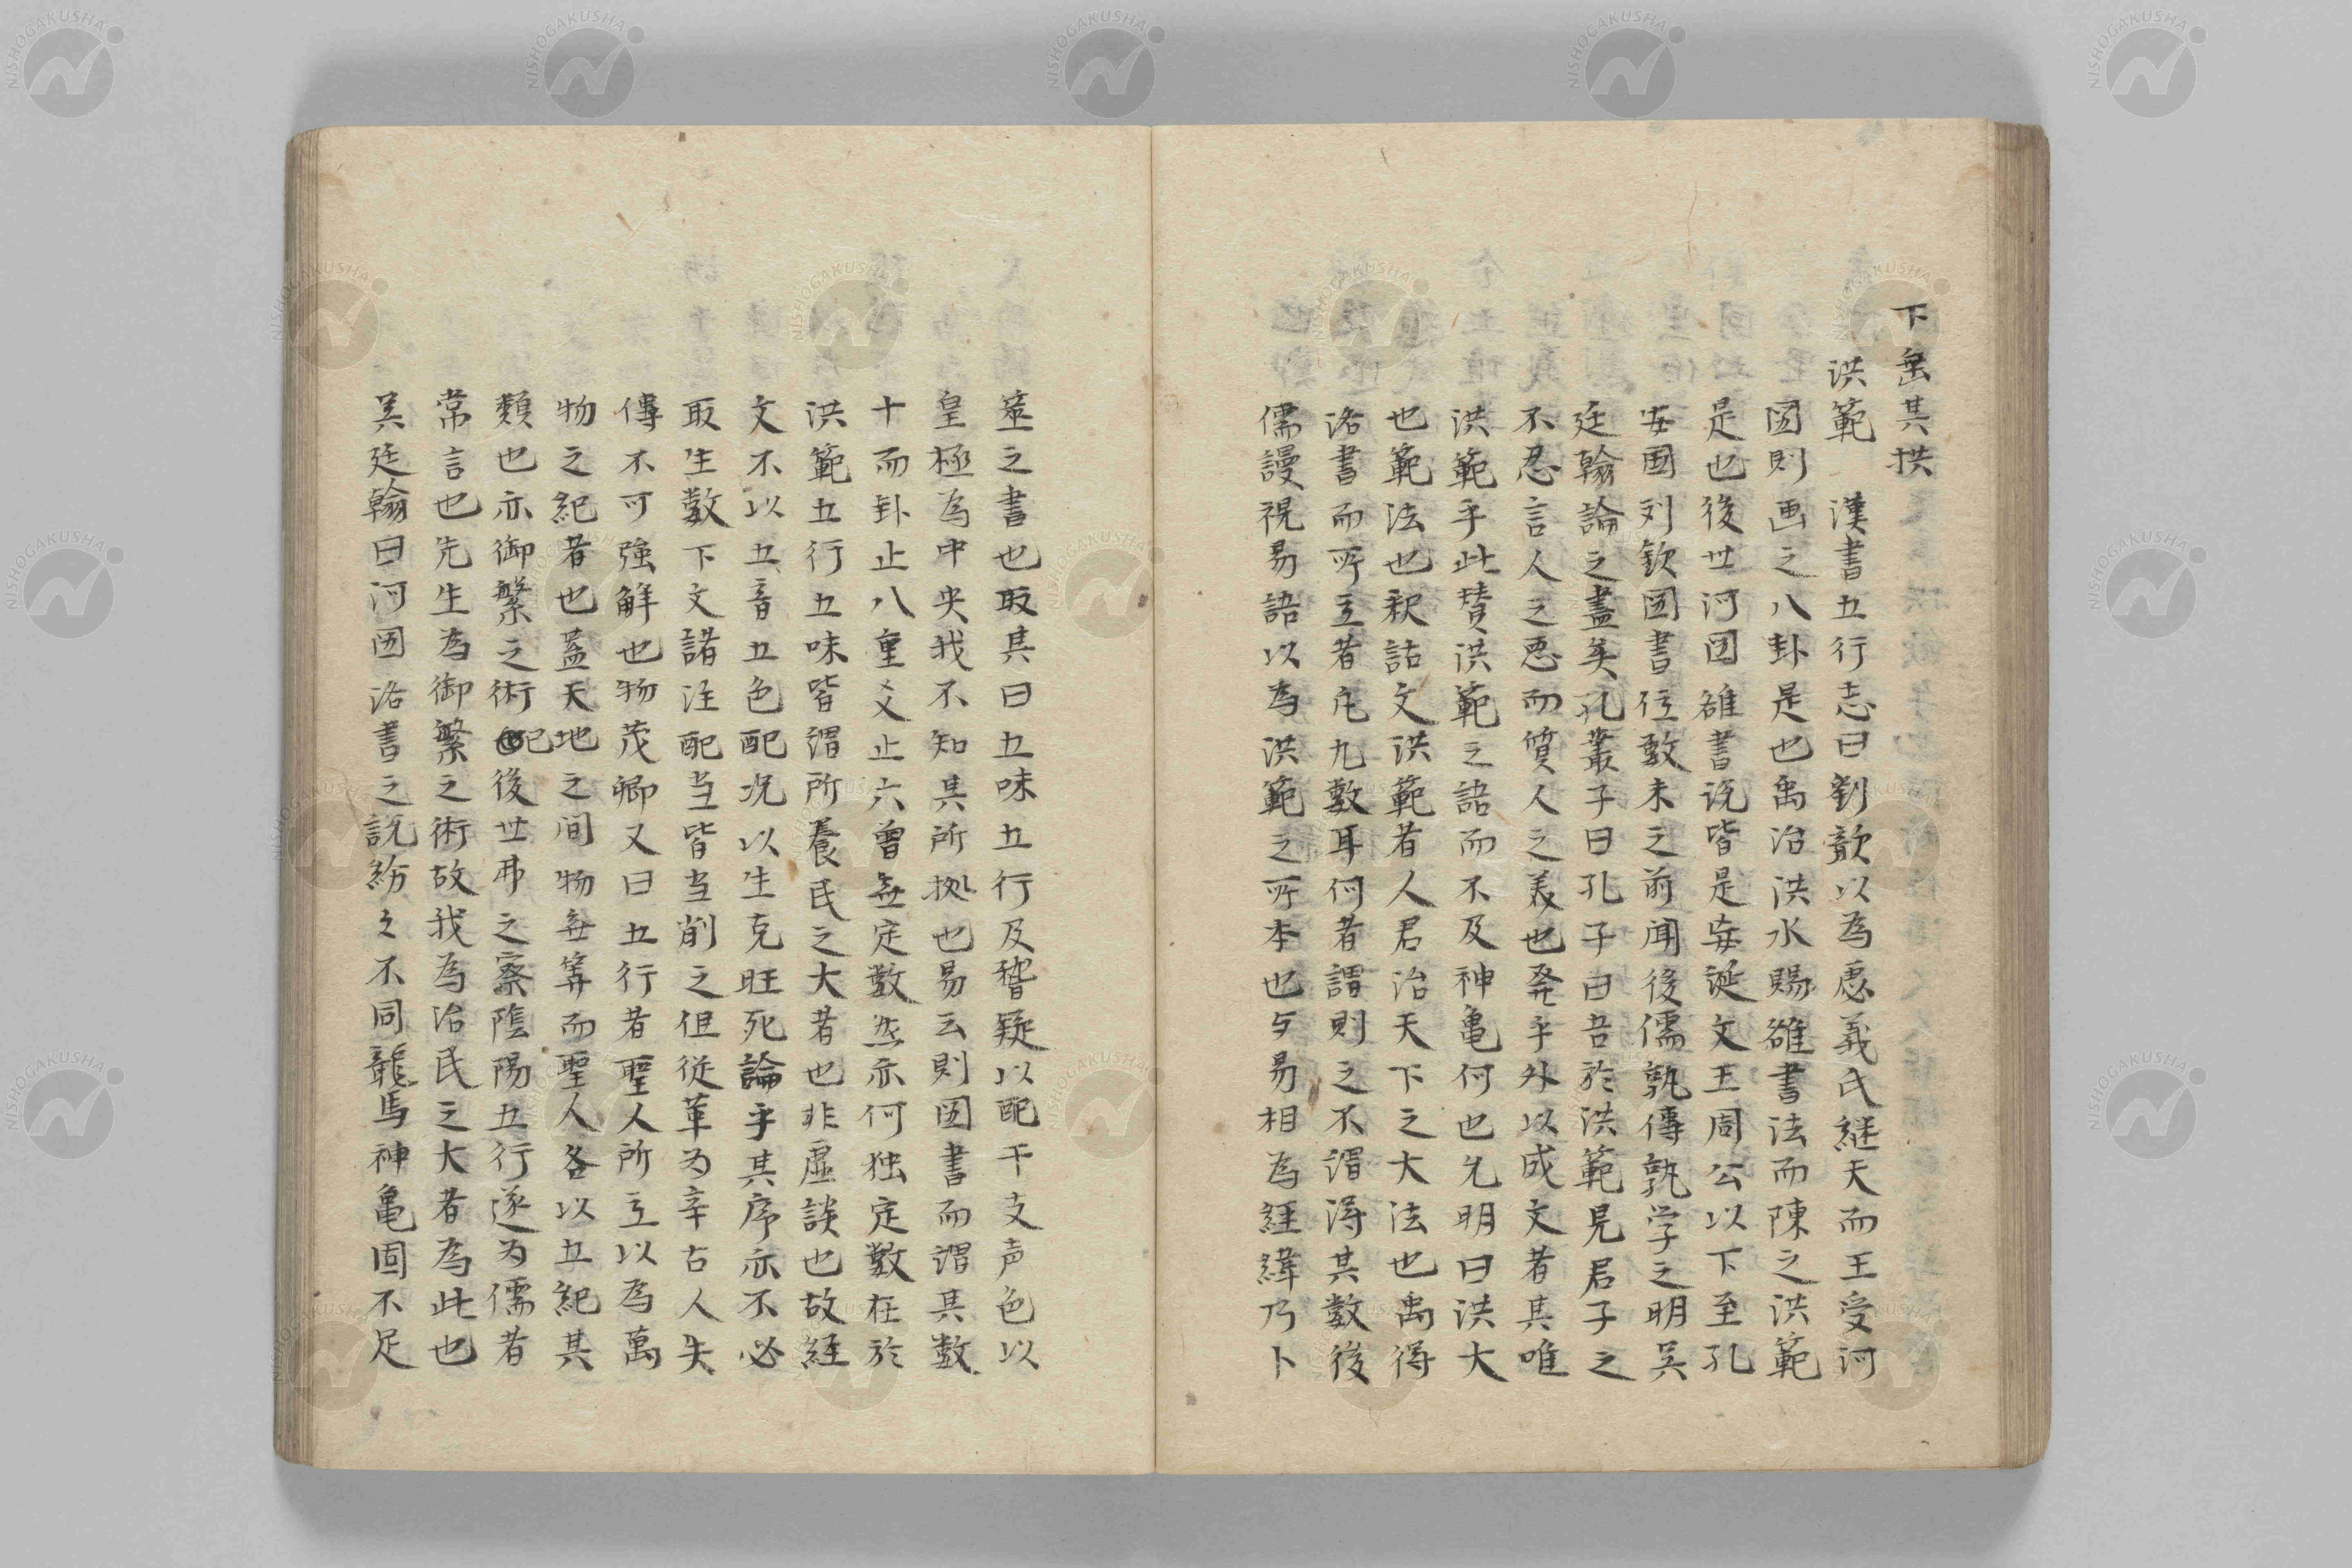 下垂其拱
洪範　漢書五行志曰劉歆以為虙羲氏継天而王受河
図則画之八卦是也禹治洪水賜雒書法而陳之洪範
是也後世河図雒書説皆是妄誕文王周公以下至孔
安国列欽図書位数未之前聞後儒孰傳孰学之明呉
廷翰論之盡矣孔叢子曰孔子曰吾於洪範見君子之
不忍言人之悪而質人之美也発乎外以成文者其唯
洪範乎此賛洪範之語而不及神亀何也允明曰洪大
也範法也釈詁文洪範者人君治天下之大法也禹得
洛書而所立者凡九数耳何者謂則之不謂得其数後
儒謾視易語以為洪範之所本也与易相為経緯乃卜
筮之書也取其曰五味五行及稽疑以配干支声色以
皇極為中央我不知其所拠也易云則図書而謂其数
十而卦止八重爻止六曽無定数然亦何独定数在於
洪範五行五味皆謂所養民之大者也非虚談也故経
文不以五音五色配況以生克旺死論乎其序亦不必
取生数下文諸注配当皆当削之但従革为辛古人失
傳不可強解也物茂卿又曰五行者聖人所立以為萬
物之紀者也蓋天地之间物無筭而聖人各以五紀其
類也亦御繁之術已後世弗之察陰陽五行遂为儒者
常言也先生為御繁之術故我為治民之大者為此也
呉廷翰曰河図洛書之説紛々不同龍馬神亀固不足
NISHOGAKUSHA